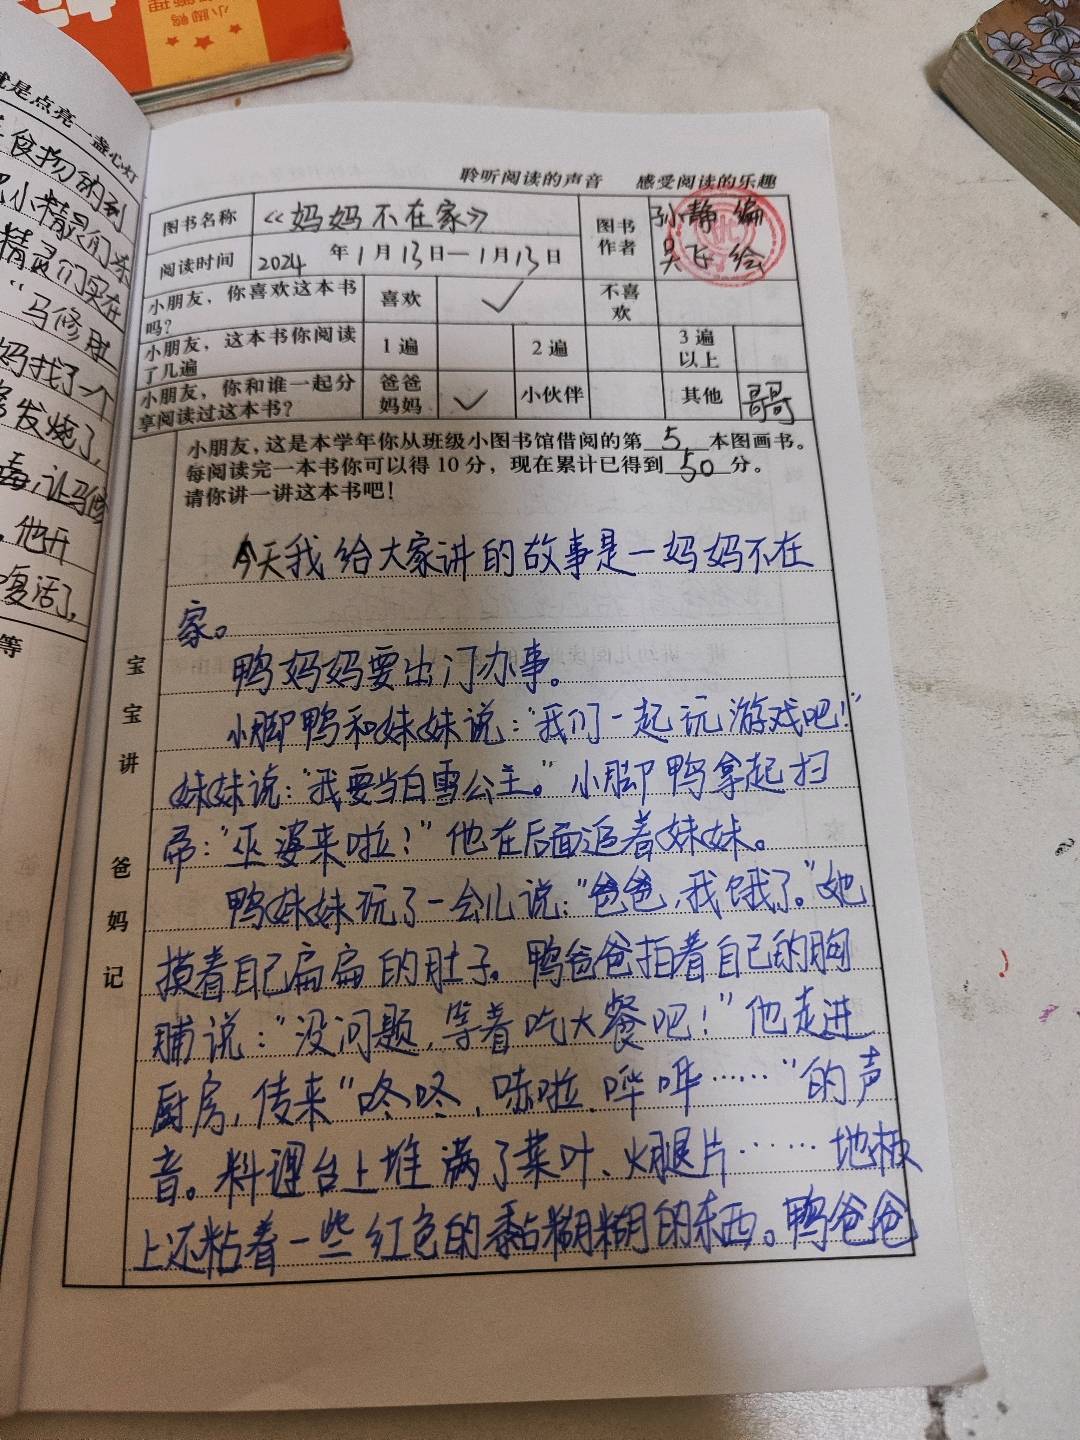 小脚鸭
就是点亮一盏心灯
食物的到
小精灵们
精灵们实在
“马修
妈找了一个
发烧了,
毒,让马修
,他开
复活了,
等
聆听阅读的声音 感受阅读的乐趣
图书名称 《妈妈不在家》 图书作者 孙静 编 吴飞 绘
阅读时间 2024年1月13日—1月13日
小朋友，你喜欢这本书吗？ 喜欢 ✓ 不喜欢
小朋友，这本书你阅读了几遍 1遍 2遍 3遍以上
小朋友，你和谁一起分享阅读过这本书？ 爸爸妈妈 ✓ 小伙伴 其他 哥哥
小朋友，这是本学年你从班级小图书馆借阅的第5本图画书。
每阅读完一本书你可以得10分，现在累计已得到50分。
请你讲一讲这本书吧！
宝宝讲 爸妈记
今天我给大家讲的故事是一妈妈不在
家。
鸭妈妈要出门办事。
小脚鸭和妹妹说：“我们一起玩游戏吧！”
妹妹说：“我要当白雪公主。”小脚鸭拿起扫
帚：“巫婆来啦！”他在后面追着妹妹。
鸭妹妹玩了一会儿说：“爸爸，我饿了。”她
摸着自己扁扁的肚子。鸭爸爸拍着自己的胸
脯说：“没问题，等着吃大餐吧！”他走进
厨房，传来“咚咚，哧啦，哗哗……”的声
音。料理台上堆满了菜叶、火腿片……地板
上还粘着一些红色的黏糊糊的东西。鸭爸爸